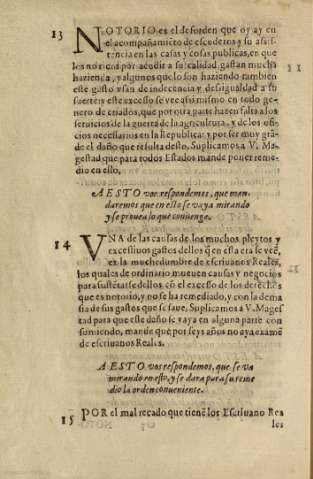 13 NOTORIO es el desorden que oy ay en
el acompañamiẽto de escuderos y su asis-
tencia en las casas y cosas publicas, en que
los notorios por acudir a su calidad, gastan mucha
hazienda, y algunos que lo son haziendo tambien
este gasto vsan de indecencia y desigualdad a su
suerte: y este excesso se vee asi mismo en todo ge-
nero de criados, que por otra parte hazen falta a los
seruicios de la guerra de la agricultura, y de los ofi-
cios necessarios en la Republica: y por ser muy grã-
de el daño que resulta desto, Suplicamos a V. Ma-
gestad que para todos Estados mande poner reme-
dio en ello,
A ESTO vos respondemos, que man-
daremos que en esto se vaya mirando
y se prouea lo que conuenga.
14 VNA de las causas de los muchos pleytos y
excessiuos gastos dellos q̃ en esta era se veẽ,
es la muchedumbre de escriuanos Reales,
los quales de ordinario mueuen causas y negocios
para sustẽtarse dellos cõ el excesso de los derechos
que es notorio, y no se ha remediado, y con la dema
sia de sus gastos que se saue, Suplicamos a V. Mages
tad para que este daño se vaya en alguna parte con
sumiendo, mande que por seys años no aya exame
de escriuanos Reales.
A ESTO vos respondemos, que se va
mirando en esto, y se dara para su reme
dio la orden conueniente.
15 POR el mal recado que tienẽ los Escriuano Rea
les